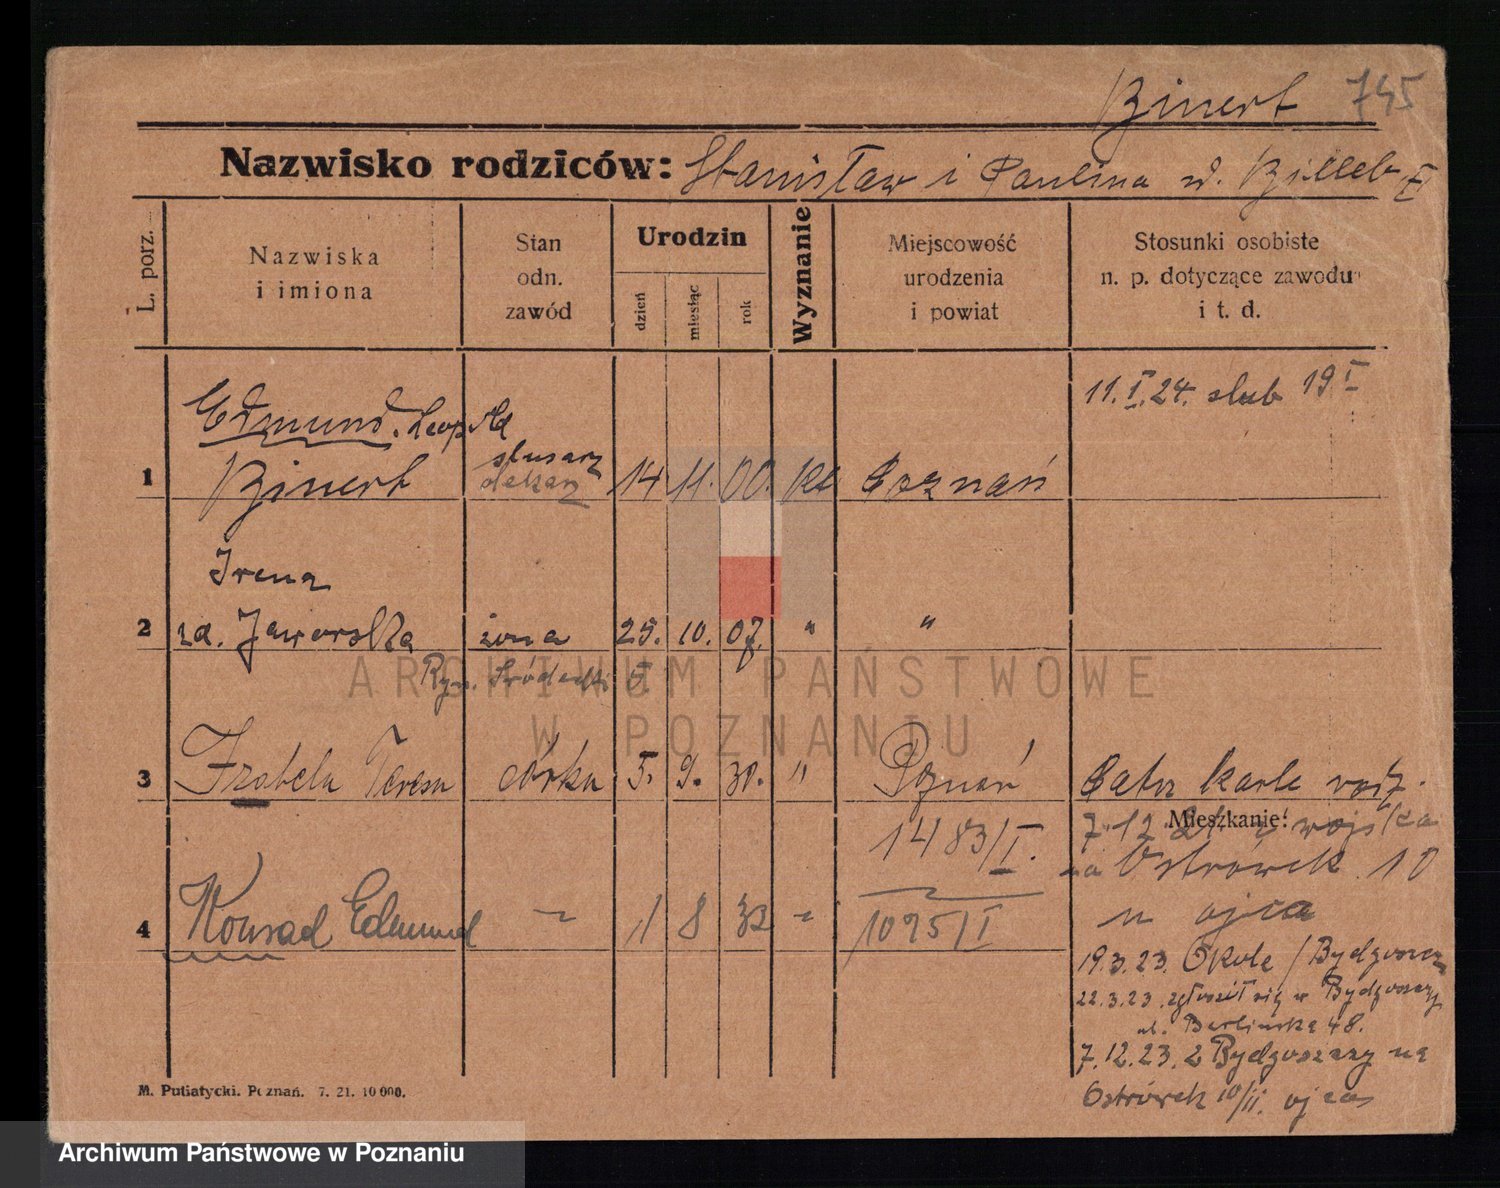 Binert 745
Nazwisko rodziców: Stanisław i Paulina
L. porz.
Nazwiska
i imiona
Stan
odn.
zawód
Urodzin
dzień
miesiąc
rok
Wyznanie
Miejscowość
urodzenia
i powiat
Stosunki osobiste
n. p. dotyczące zawodu
i t. d.
11.I.24. slub 19 I
Edmund. Leopold
1 Binert slusarz 14 11. 00. kt Poznań
Irena
2 za. Jaworska żona 25. 10. 07. " "
Ryn. Śródecki 5.
3 Izabela Teresa córka 5. 9. 30. " Poznań
Mieszkanie:
7.12 21 z wojska
1483/I.
na Ostrówek 10
u ojca
4 Konrad Edmund 1 8 32 1095/I
19.3.23. Okole / Bydgoszcz
22.3.23. zgłosił się w Bydgoszczy
ul. Berlińska 48.
7.12.23. z Bydgoszczy na
Ostrówek 10/II. ojca
M. Putiatycki. Poznań. 7. 21. 10 000.
ARCHIWUM PAŃSTWOWE
W POZNANIU
Archiwum Państwowe w Poznaniu